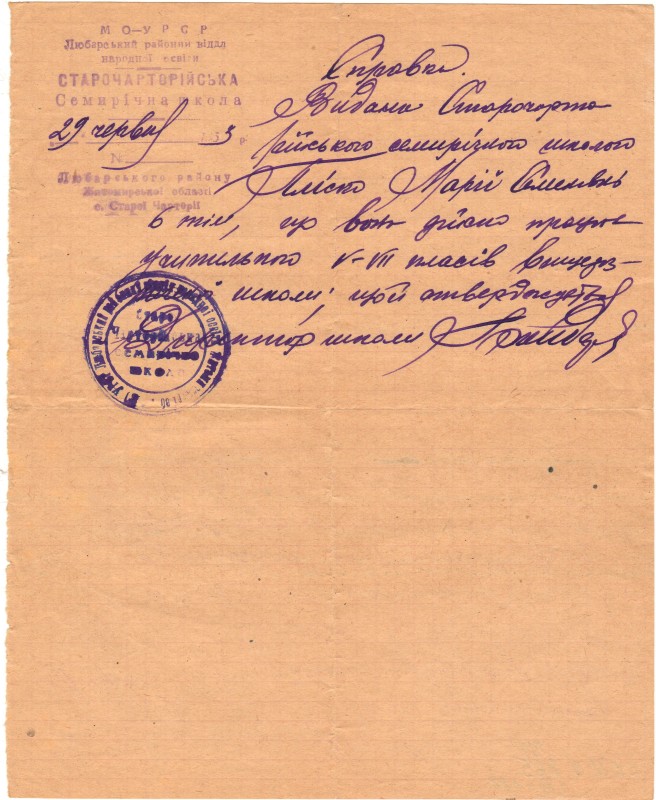 МО—УРСР
Любарський районни відділ
народної освіти
СТАРОЧАРТОРІЙСЬКА
Семирічна школа
29 червня 195 р
№
Любарського району
Житомирської області
с. Старої Чарторії
Справка.
Видана Старочарто
рійською семирічною школою
Марії Семенівні
в тім, що вона дійсно працює
учителькою V–VII класів вище
школи, що й стверджується
Директор школи
СЕМИРІЧНА
ШКОЛА